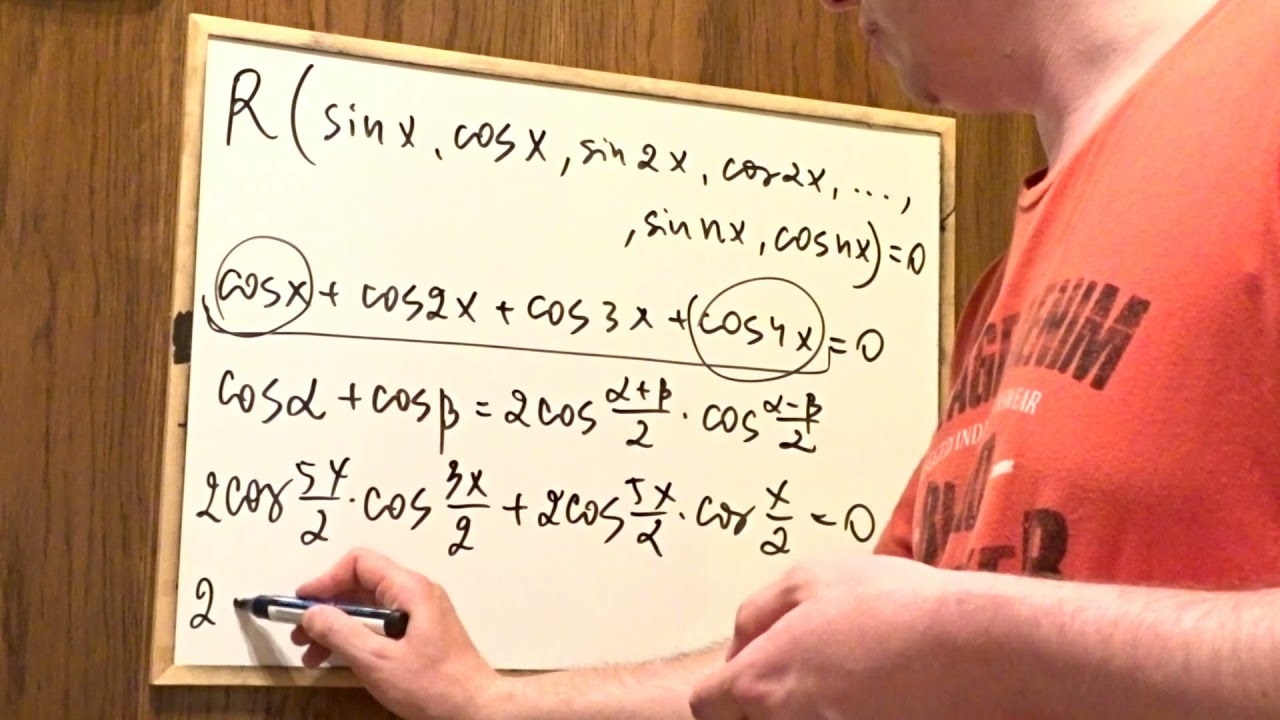 R(sin x, cos x, sin 2x, cos 2x, ...,
, sin nx, cos nx) = 0
cos x + cos 2x + cos 3x + cos 4x = 0
cos α + cos β = 2 cos (α+β)/2 · cos (α-β)/2
2 cos 5x/2 · cos 3x/2 + 2 cos 5x/2 · cos x/2 = 0
2